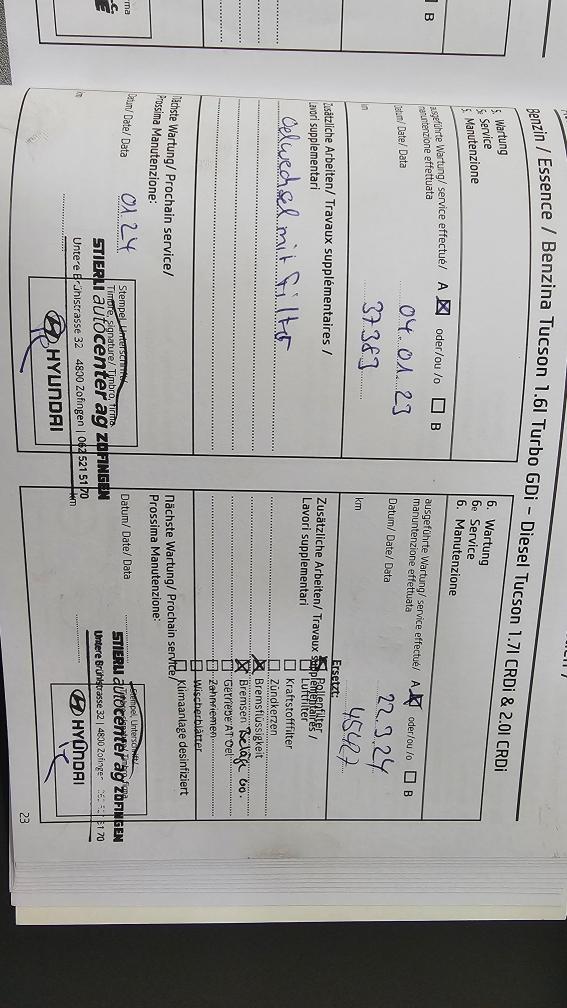 B
Benzin / Essence / Benzina Tucson 1.6l Turbo GDi – Diesel Tucson 1.7l CRDi & 2.0l CRDi
5. Wartung
5e Service
5. Manutenzione
ausgeführte Wartung/ service effectué/ A ☒ oder/ou /o ☐ B
manuntenzione effettuata
Datum/ Date/ Data 04.01.23
km 37383
Zusätzliche Arbeiten/ Travaux supplémentaires /
Lavori supplementari
Oelwechsel mit Filter
Nächste Wartung/ Prochain service/
Prossima Manutenzione:
Datum/ Date/ Data 01 24
km
Stempel, Unterschrift/
Timbre, signature/ Timbro, firma
STIERLI autocenter ag ZOFINGEN
Untere Brühlstrasse 32 4800 Zofingen | 062 521 51 70
HYUNDAI
6. Wartung
6e Service
6. Manutenzione
ausgeführte Wartung/ service effectué/ A ☒ oder/ou /o ☐ B
manuntenzione effettuata
Datum/ Date/ Data 22.9.24
km
Zusätzliche Arbeiten/ Travaux supplémentaires /
Lavori supplementari
Ersetzt:
☒ Pollenfilter
☐ Luftfilter
☐ Kraftstofffilter
☐ Zündkerzen
☒ Bremsflüssigkeit
☒ Bremsen Beläge
☐ Getriebe AT Oel
☐ Zahnriemen
☐ Wischerblätter
☐ Klimaanlage desinfiziert
Nächste Wartung/ Prochain service/
Prossima Manutenzione:
Datum/ Date/ Data
km
Stempel, Unterschrift/
STIERLI autocenter ag ZOFINGEN
Untere Brühlstrasse 32 | 4800 Zofingen 062 521 51 70
HYUNDAI
23